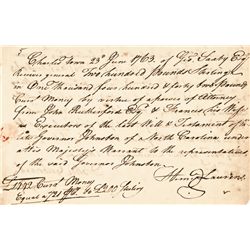 Charles town 23d June 1763. of Geo. Saxby Esqr
Receiver general Two hundred pounds Sterling
in One thousand four hundred & forty two pounds
Curr. Money by virtue of a power of Attorney
from John Rutherford Esqr. & Frances his Wife
as Executors of the last Will & Testament of the
late Governor Johnston of North Carolina under
His Majesty's Warrant to the representatives
of the said Governor Johnston
Henry Laurens
£1442 Curr. Money
Equal at 721 to £200 Sterlg